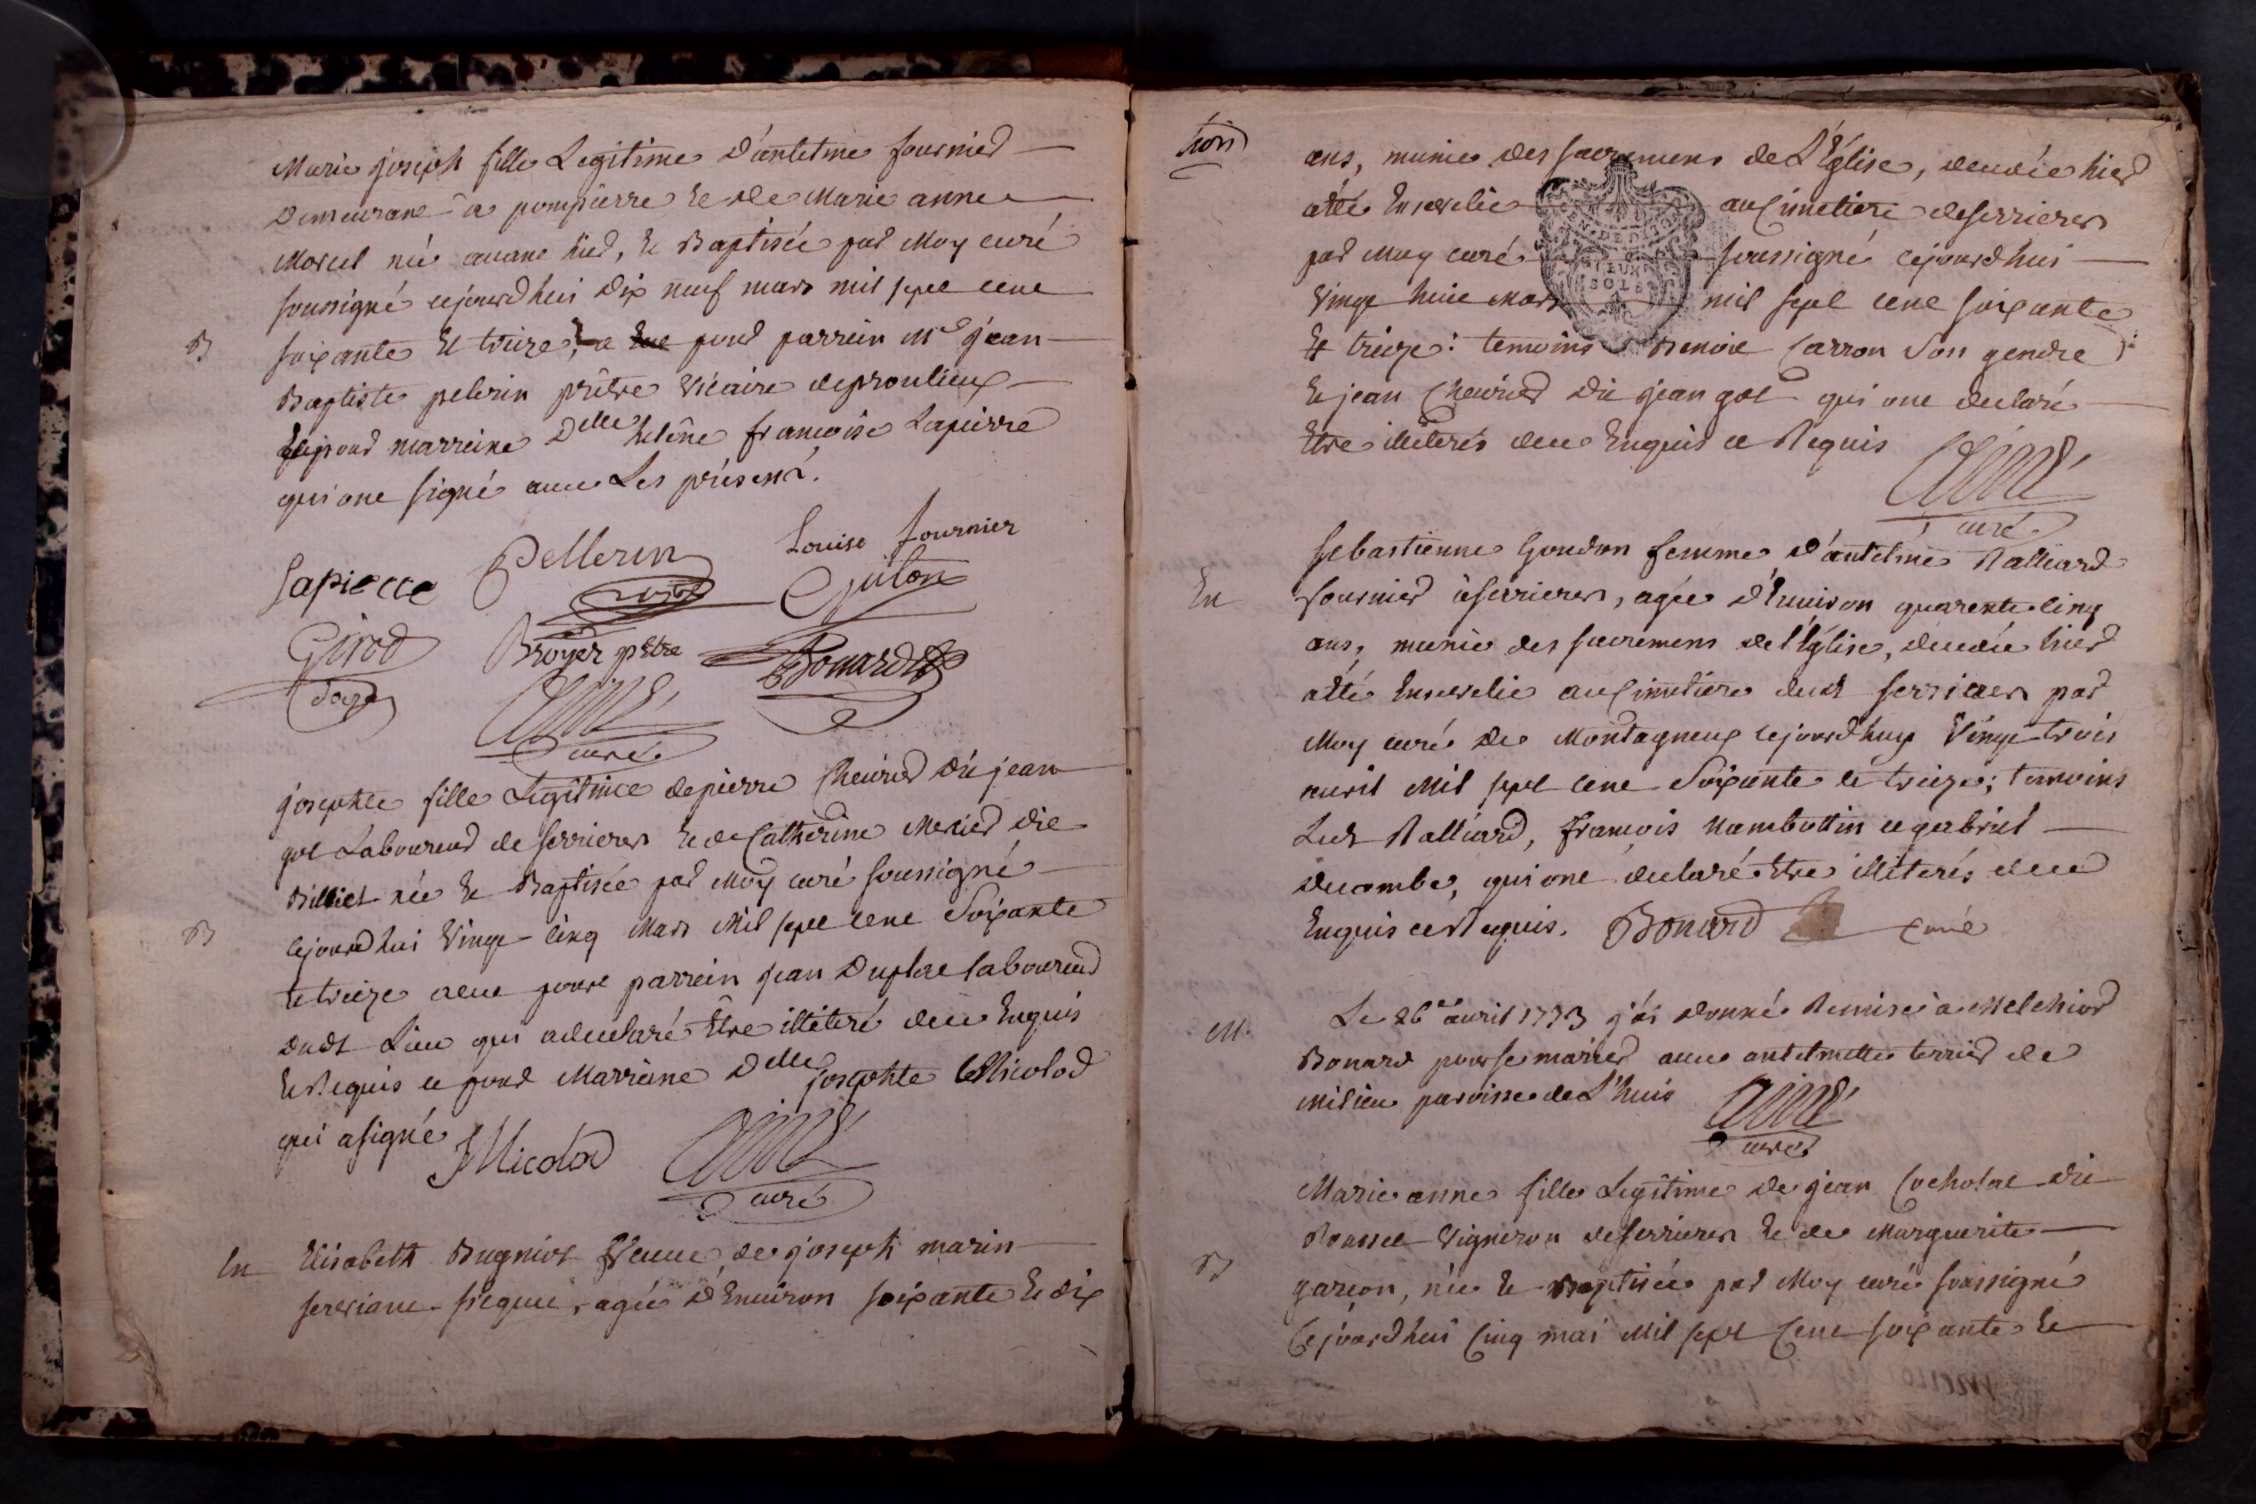 Marie joseph fille Legitime d'antelme fournier
Demeurant a pompierre et de Marie anne
Morel née avant hier, et Baptisée par Moy curé
soussigné cejourdhui dix neuf mars mil sept cent
B
soixante et treize, a eu pour parrein Mre jean
Baptiste pelerin prêtre Vicaire de proulieux
et pour marreine Delle helène francoise Lapierre
qui ont signé avec Les présens.
Lapierre Pellerin Louise fournier
Guiton
Girod Broyer ptre Bonard
curé
josephte fille Legitime de pierre Chevrier dit jean
got Laboureur de serrieres et de Catherine Mercier dit
Billiet née et Baptisée par Moy curé soussigné
B
cejourdhui Vingt cinq Mars Mil sept cent Soixante
et treize a eu pour parrein jean Duplat Laboureur
dudt Lieu qui a declaré être illiteré de ce Enquis
et Requis et pour Marreine Delle josephte Micolod
qui a signé JMicolod
curé
En
Elisabeth Bugniot Veuve de joseph marin
agée d'Environ soixante et dix
trois
ans, munie des sacremens de L'Église, decedée hier
a été Ensevelie au Cimetiere de serrieres
par Moy curé soussigné cejourdhui
Vingt huit Mars mil sept cent soixante
et treize : temoins Benoit Carron son gendre
et jean Chevrier dit jean got qui ont declaré
être illiterés de ce Enquis et Requis
curé
Sebastienne Goudon femme d'antelme Ralliard
En
fournier a serrieres, agée d'Environ quarente cinq
ans, munie des sacremens de l'Église, decedée hier
a été Ensevelie au Cimetiere dudt serrieres par
Moy curé de Montagneux cejourdhuy Vingt trois
avril Mil sept cent Soixante et treize; temoins
Ledt Ralliard, francois Nambottin et gabriel
ducombe, qui ont declaré être illiterés de ce
Enquis et Requis. Bonard curé
M.
Le 26e avril 1773 j'ai donné Remise a Melchior
Bonard pour se marier avec antelmette terrier de
Milieu paroisse de L'huis
curé
Marie anne fille Legitime de jean Cocholat dit
Rousset Vigneron de serrieres et de Marguerite
B
garcon, née et Baptisée par Moy curé soussigné
Cejourdhui Cinq mai Mil sept Cent soixante et